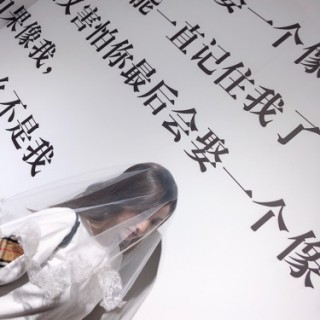 娶一个像
能一直记住我了
又害怕你最后会娶一个像
果像我，
么不是我